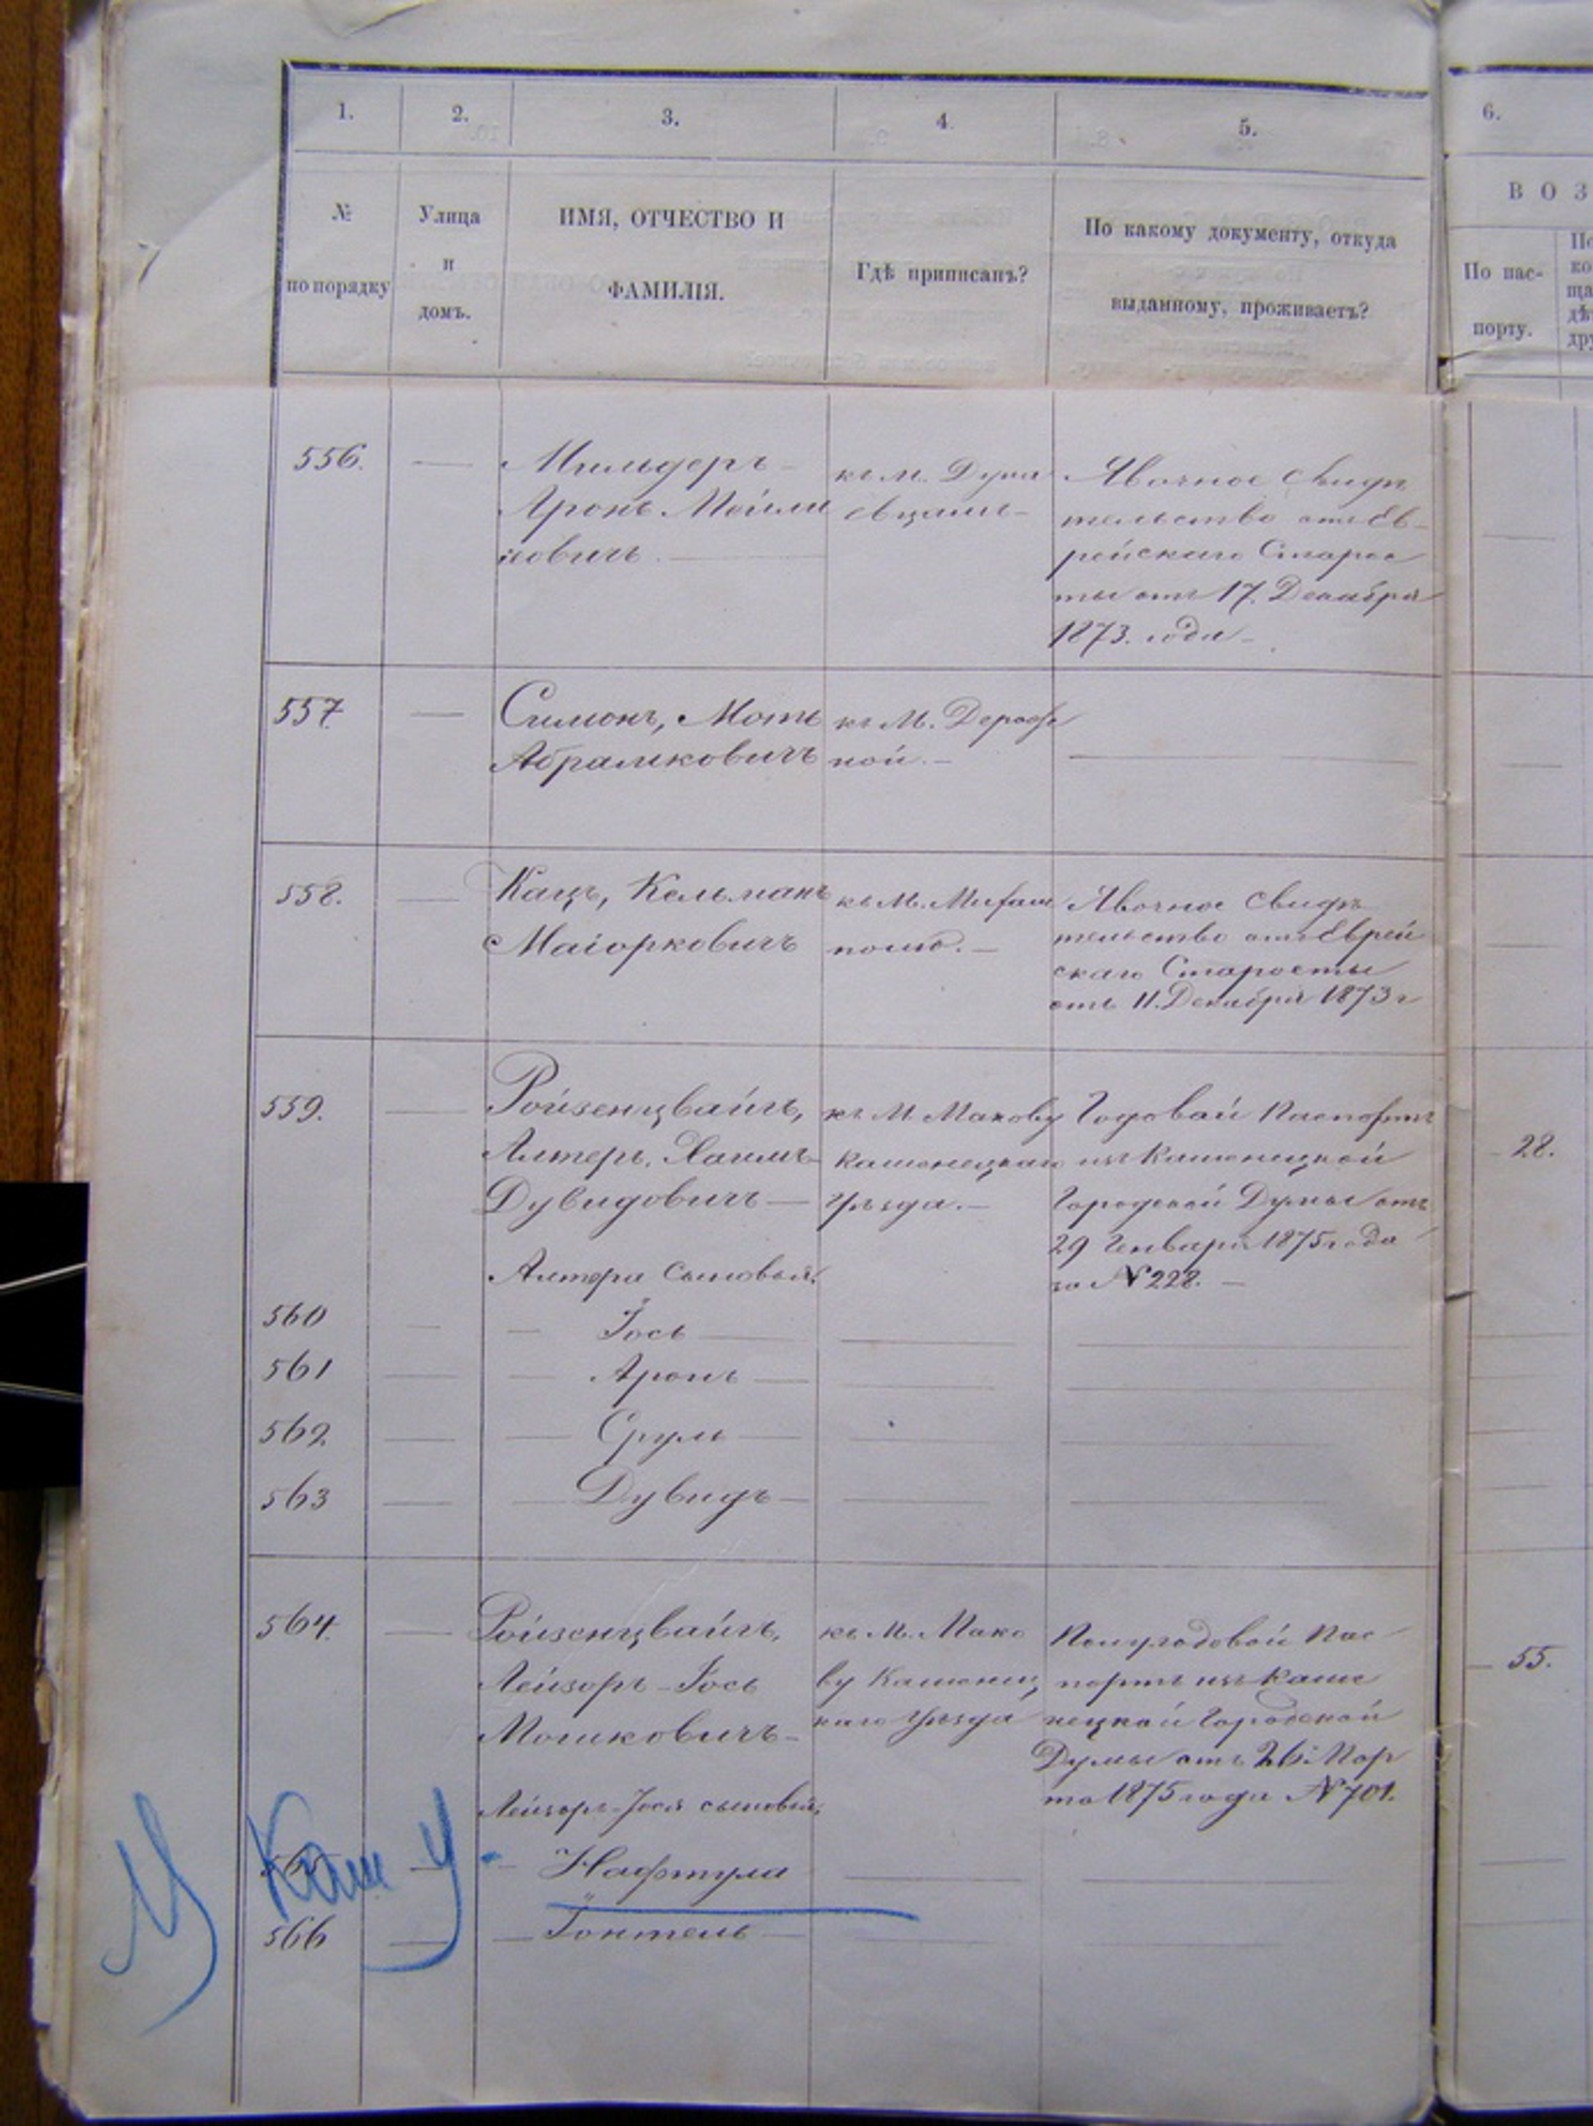 1. 2. 3. 4. 5. 6.
№ по порядку
Улица и домъ.
ИМЯ, ОТЧЕСТВО И ФАМИЛІЯ.
Гдѣ приписанъ?
По какому документу, откуда выданному, проживаетъ?
В О З
По пас-
порту.
556. Мильдеръ
Аронъ Мойшковичъ
къ м. Дунаевцамъ
Явочное свидѣ
тельство отъ Ев-
рейскаго Старос
ты отъ 17. Декабря
1873. года
557. Симонъ, Моть
Абрамковичъ
къ М. Дераж
ной.
558. Кацъ, Кельманъ
Маіорковичъ
къ М.
полю.
Явочное свидѣ
тельство отъ Еврей
скаго Старосты
отъ 11. Декабря 1873 г
559. Ройзенцвайгъ,
Алтеръ, Хаимъ
Дувидовичъ
къ М. Макову
Каменецкаго
Уѣзда.
Годовай Паспортъ
изъ Каменецкой
Городской Думы отъ
29 Генваря 1875 года
за № 228.
28.
Алтера сыновья:
560 Іось
561 Аронъ
562 Сруль
563 Дувидъ
564. Ройзенцвайгъ,
Лейзоръ-Іось
Мошковичъ
къ М. Мако
ву Каменец
каго Уѣзда
Полугодовой Пас
портъ изъ Каме
нецкой Городской
Думы отъ 26 Мар
та 1875 года № 701.
55.
Лейзоръ-Іося сыновья:
М Кам У
Нафтула
566 Іонтель